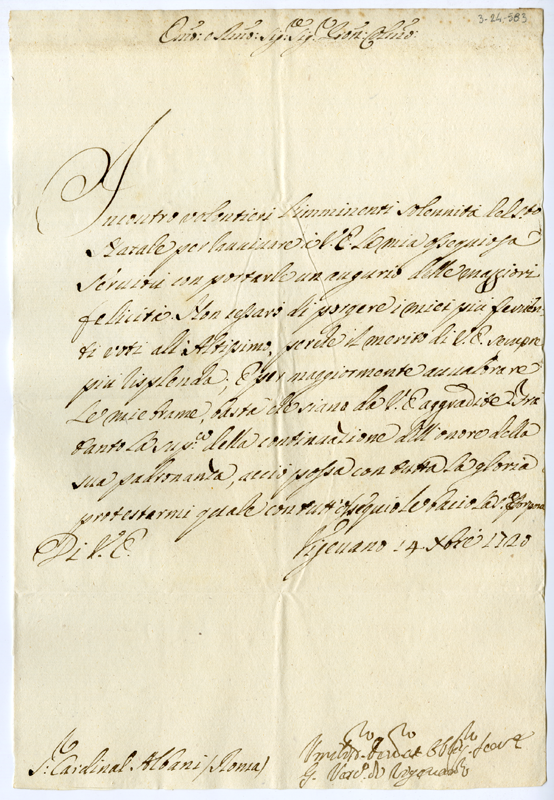 3-24-583
Emo: e Rmo: Sigre Sigre Pron: Colmo:
Incontro volontieri l'imminenti solennità del Sto
Natale per ravvivare à V.E. le mia ossequiosa
servitù con portarle un augurio delle maggiori
felicità. Non cessarò di porgere i miei più ferven-
ti voti all'Altissimo, perche il merito di V.E. sempre
più risplenda; E per maggiormente avvalorare
le mie brame, basta che siano da V.E. aggradite. Fra
tanto la supco della continuazione dell'onore della
sua padronanza, acciò possa con tutta la gloria
protestarmi quale con tutt'ossequio le bacio la S. Porpora
Di V.E. Vigevano 14 Xbre 1720
Sr. Cardinal Albani (Roma)
G. Vesco. di Vigevano